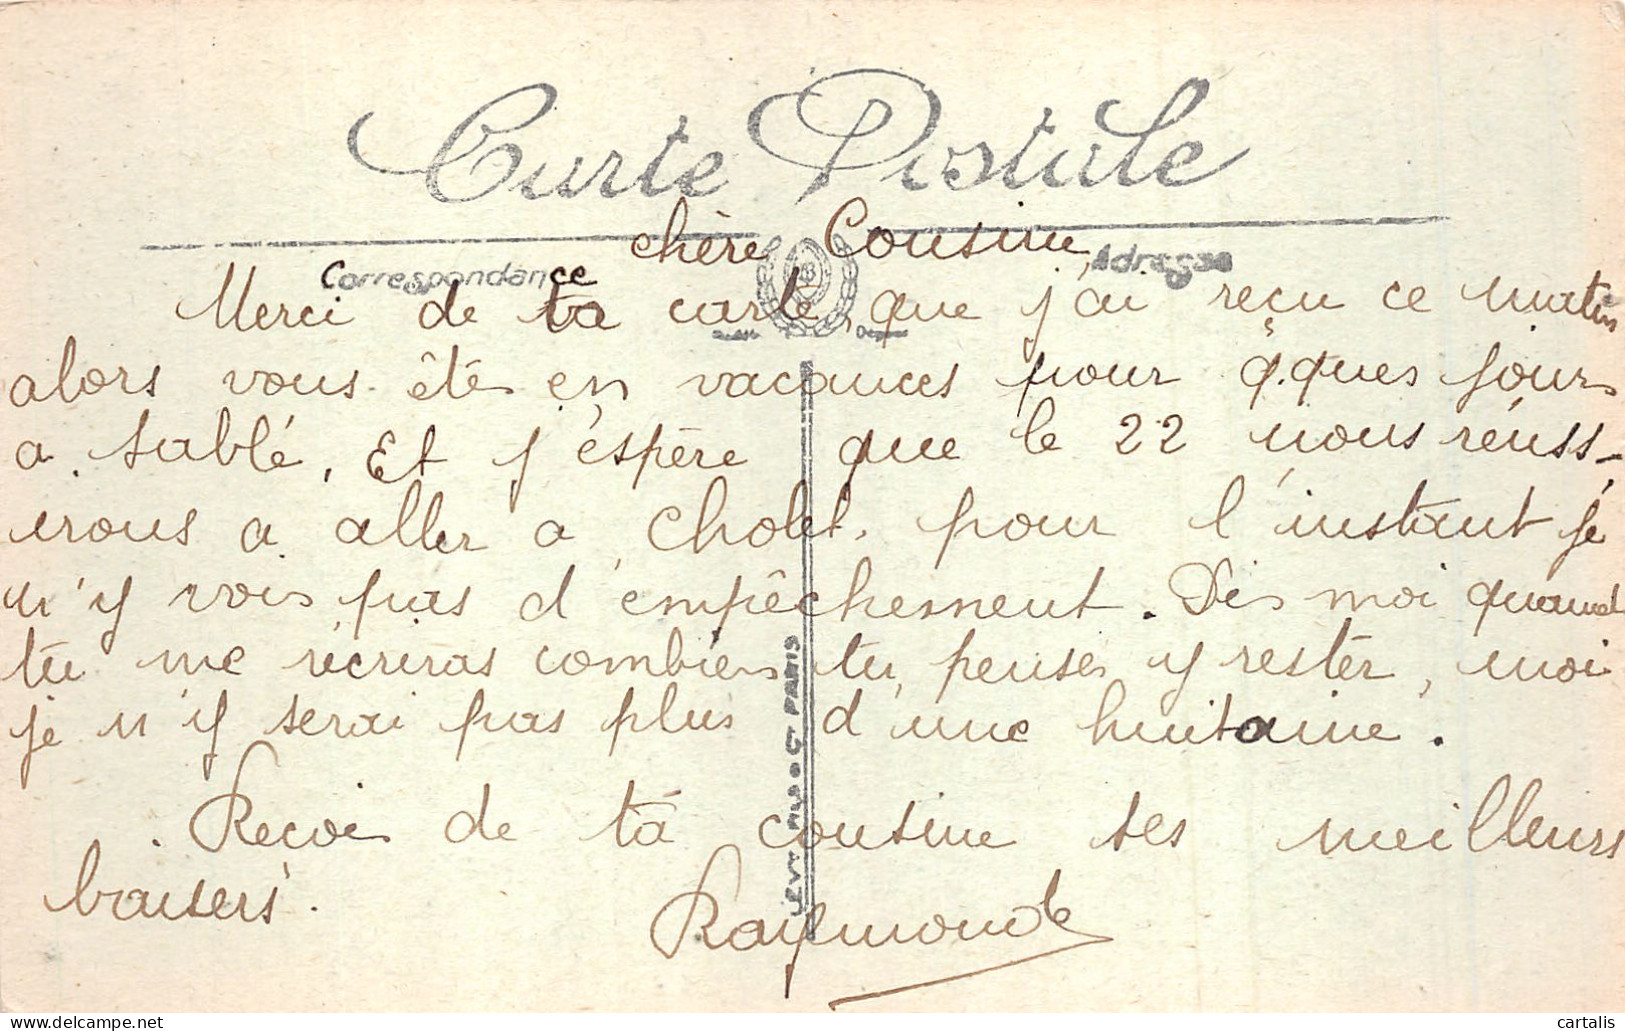 Carte Postale
chère Cousine
Correspondance
Adresse
Merci de ta carte, que j'ai reçu ce matin
alors vous êtes en vacances pour q.ques jours
a Sablé, Et j'éspère que le 22 nous réuss-
irons a aller a Cholet. pour l'instant je
n'y vois pas d'empêchement. Dis moi quand
tu me récriras combien tu penses y rester, moi
je n'y serai pas plus d'une huitaine.
Reçois de ta cousine ses meilleurs
baisers.
Raymonde
LEVY FILS & Cie PARIS
cartalis